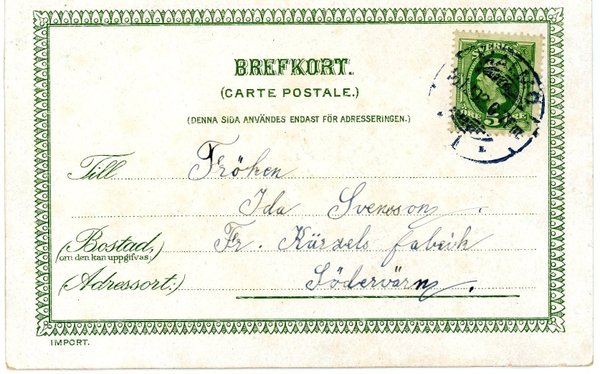 BREFKORT.
(CARTE POSTALE.)
(DENNA SIDA ANVÄNDES ENDAST FÖR ADRESSERINGEN.)
Till Fröken
Ida Svensson.
(Bostad, Fr. Kürzels fabrik
om den kan uppgifvas:
Adressort:) Södervärn.
IMPORT.
SVERIGE
5